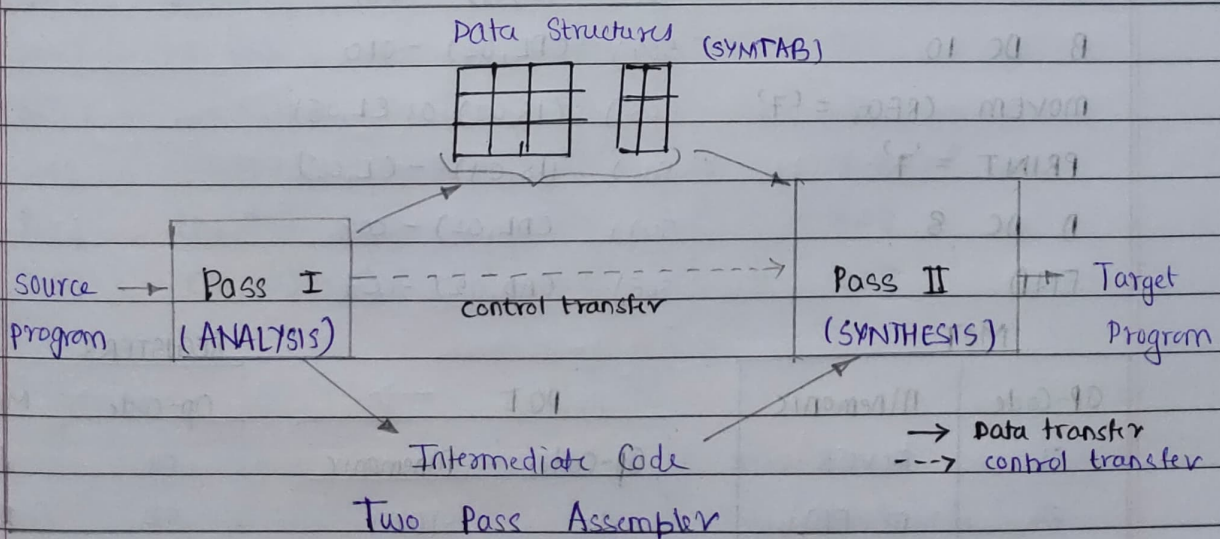 Data Structures
(SYMTAB)
source program
Pass I
(ANALYSIS)
control transfer
Pass II
(SYNTHESIS)
Target Program
Intermediate Code
→ Data transfer
---> control transfer
Two Pass Assempler